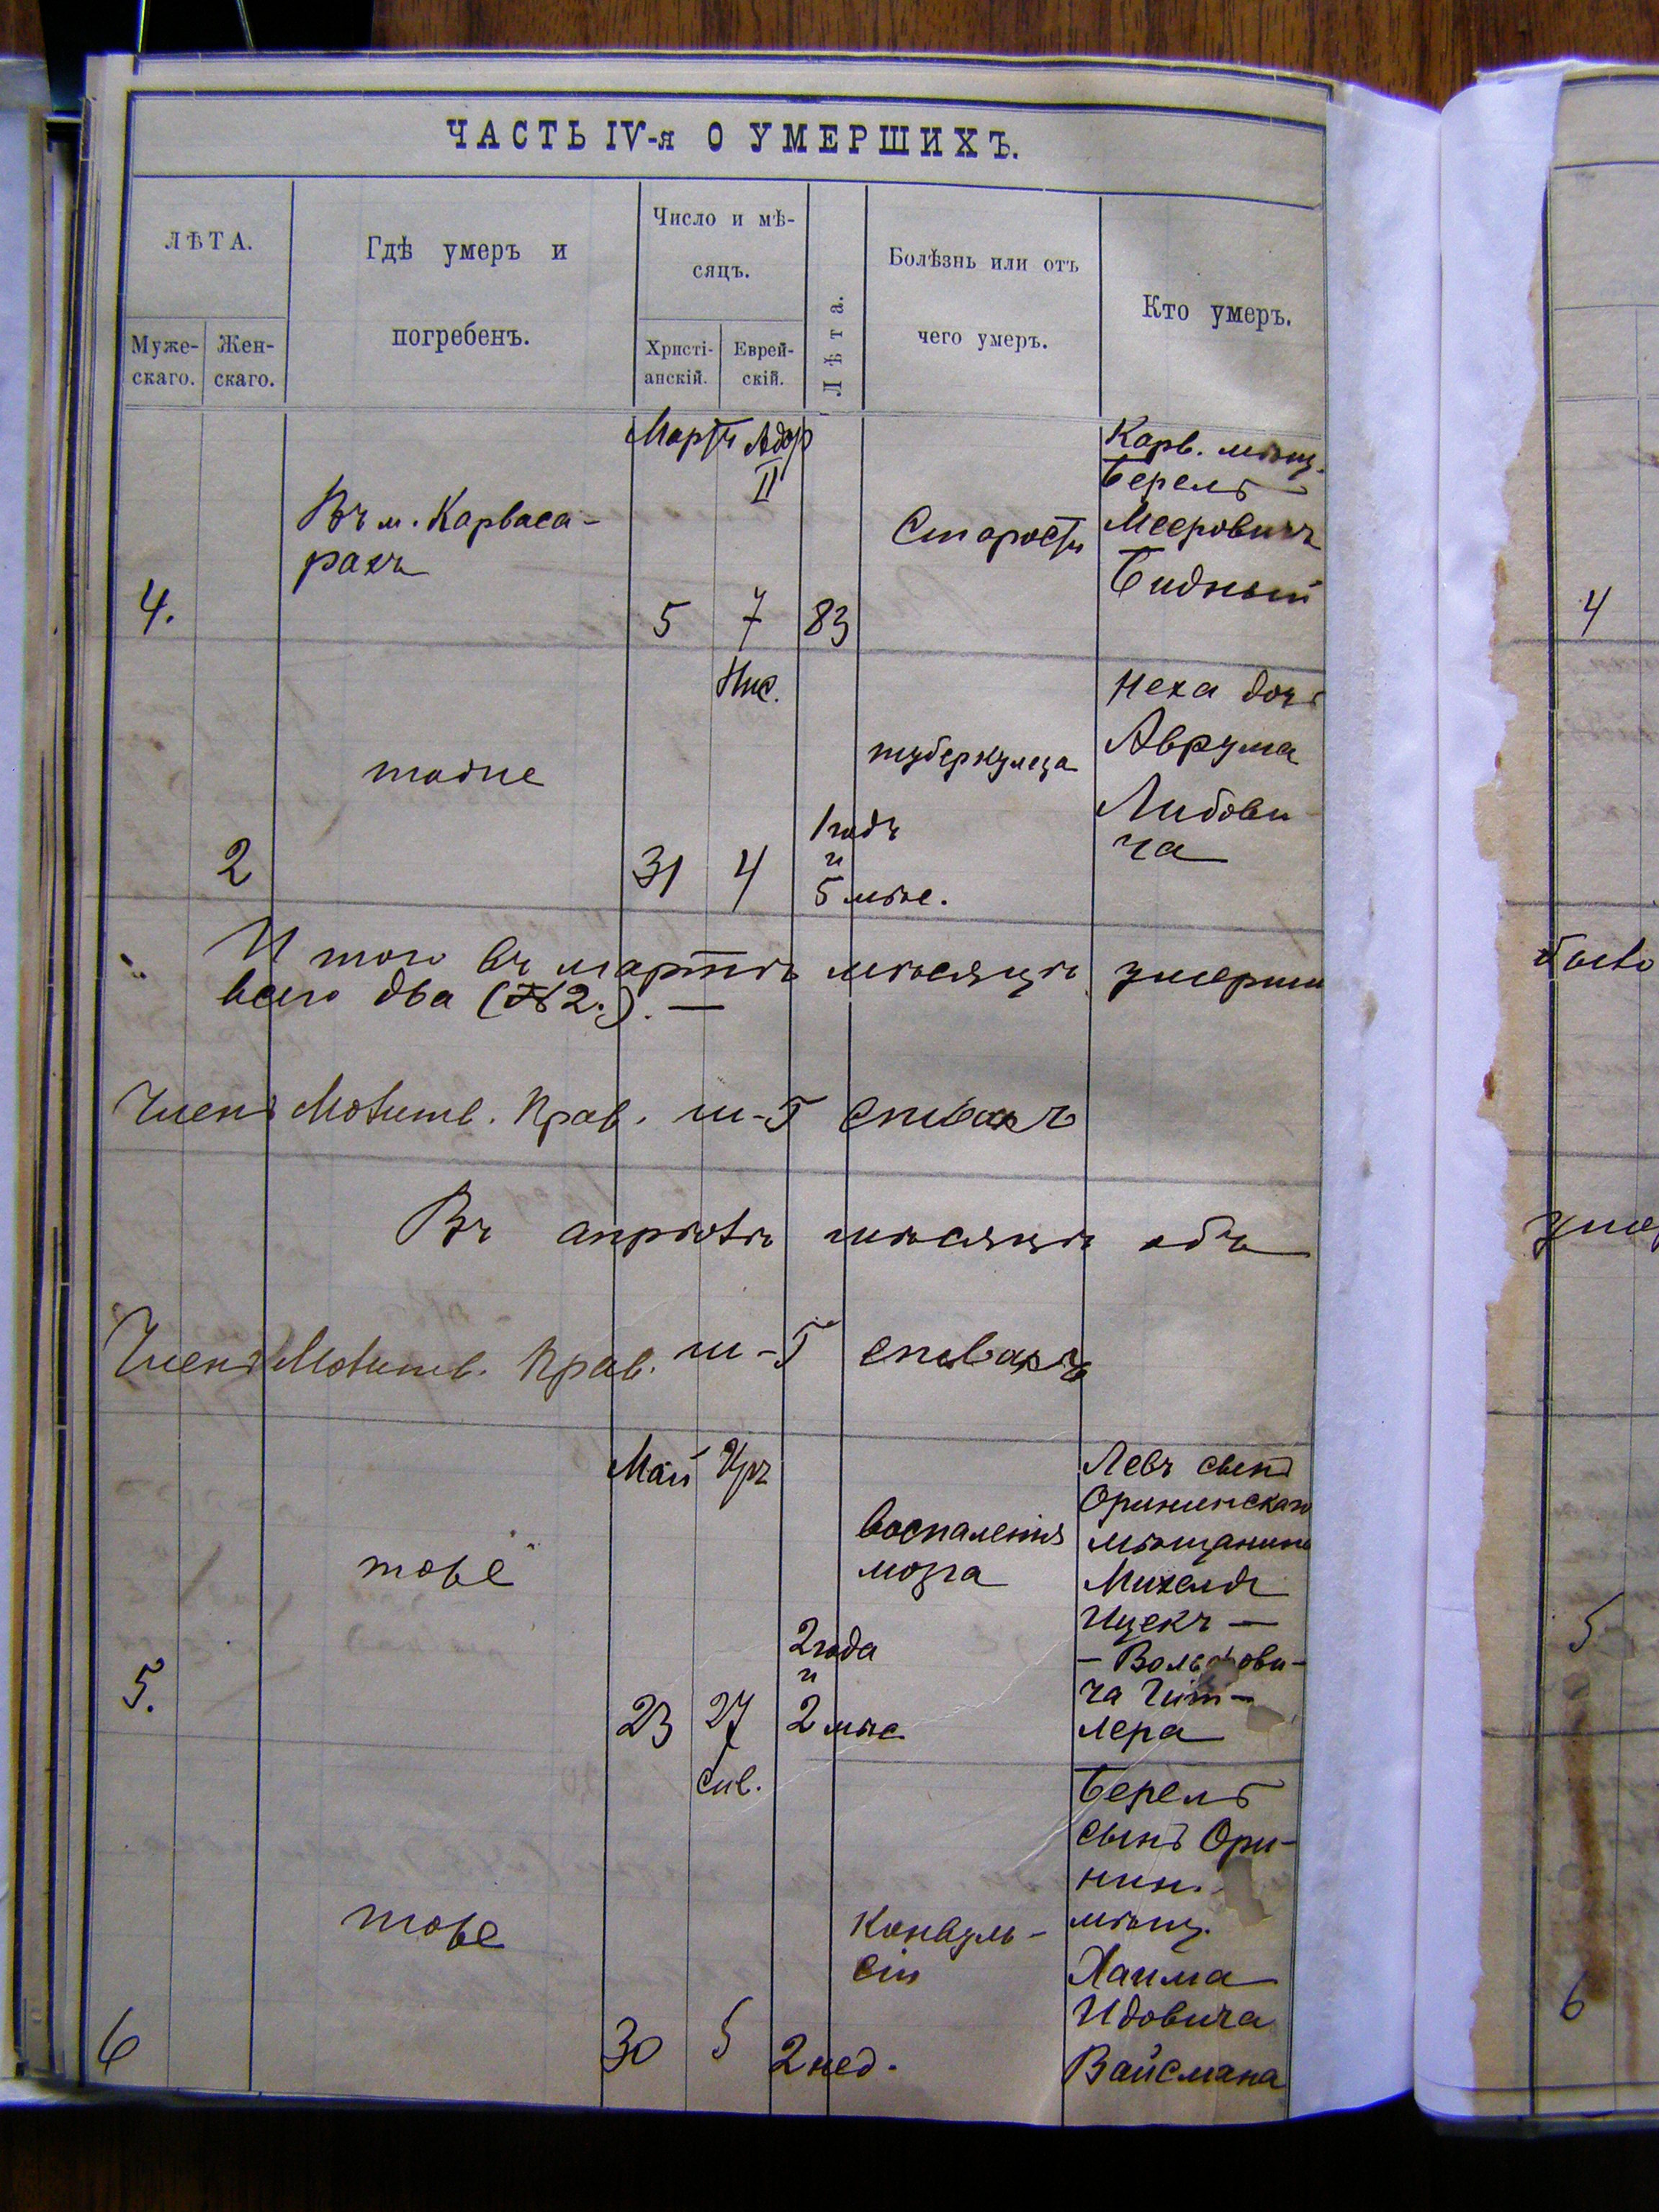 ЧАСТЬ IV-я О УМЕРШИХЪ.
ЛѢТА.
Муже-
скаго.
Жен-
скаго.
Гдѣ умеръ и
погребенъ.
Число и мѣ-
сяцъ.
Христі-
анскій.
Еврей-
скій.
Лѣта.
Болѣзнь или отъ
чего умеръ.
Кто умеръ.
Мартъ Адар
II
4.
Въ м. Карваса-
рахъ
5 7 83
Старость
Карв. мѣщ.
Берель
Мееровичъ
Бидный
4
Нис.
2
тоже
31 4
1 годъ
и
5 мѣс.
туберкулеза
Неха дочь
Аврума
Либови-
ча
Итого въ мартѣ мѣсяцѣ умерши
всего два (№ 2.). —
было
Членъ Молитв. Прав. Ш-Г
Въ апрѣлѣ мѣсяцѣ
Членъ Молитв. Прав. Ш-Г
Май Iръ
5.
тоже
23 27
2 года
и
2 мѣс
воспаленія
мозга
Левъ сынъ
Орининскаго
мѣщанина
Михель
Ицекъ —
— Вольфови-
ча
лера
5
Сив.
6
тоже
30 5 2 нед.
Конвуль-
сіи
Берель
сынъ Ори-
нин.
мѣщ.
Хаима
Идовича
Вайсмана
6